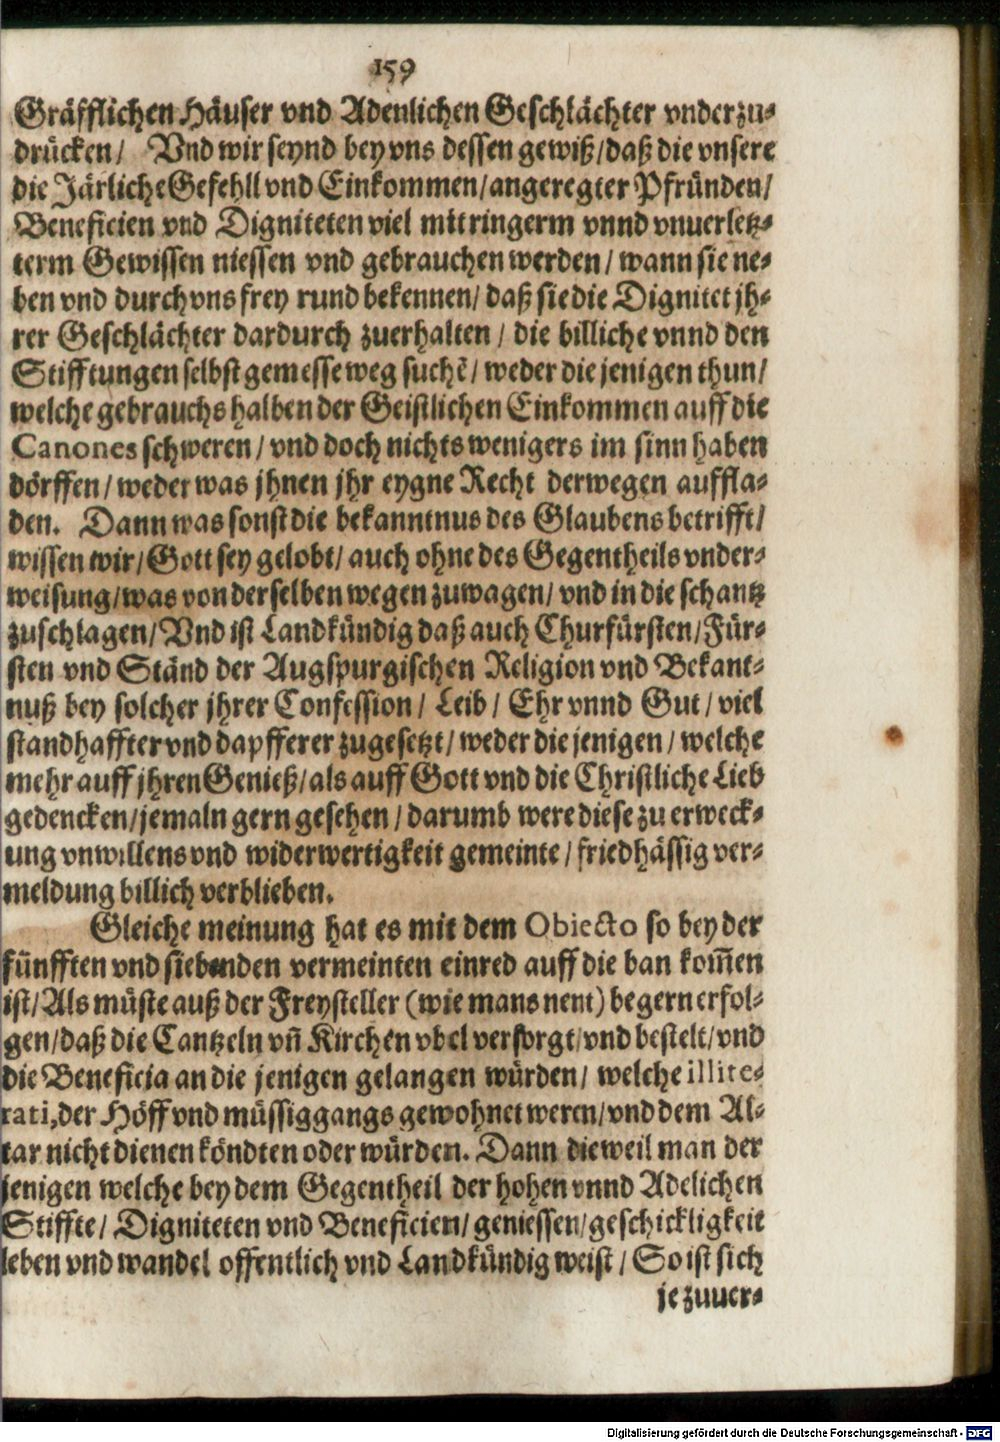 159
Gräfflichen Häuser vnd Adenlichen Geschlächter vnderzu-
drücken/ Vnd wir seynd bey vns dessen gewiß/ daß die vnsere
die Järliche Gefehll vnd Einkommen/ angeregter Pfründen/
Beneficien vnd Digniteten viel mit ringerm vnnd vnuerletz-
term Gewissen niessen vnd gebrauchen werden/ wann sie ne-
ben vnd durch vns frey rund bekennen/ daß sie die Dignitet jh-
rer Geschlächter dardurch zuerhalten/ die billiche vnnd den
Stifftungen selbst gemesse weg suchẽ/ weder die jenigen thun/
welche gebrauchs halben der Geistlichen Einkommen auff die
Canones schweren/ vnd doch nichts wenigers im sinn haben
dörffen/ weder was jhnen jhr eygne Recht derwegen auffla-
den. Dann was sonst die bekanntnus des Glaubens betrifft/
wissen wir/ Gott sey gelobt/ auch ohne des Gegentheils vnder-
weisung/ was von derselben wegen zuwagen/ vnd in die schantz
zuschlagen/ Vnd ist Landkündig daß auch Churfürsten/ Für-
sten vnd Ständ der Augspurgischen Religion vnd Bekant-
nuß bey solcher jhrer Confession/ Leib/ Ehr vnnd Gut/ viel
standhaffter vnd dapfferer zugesetzt/ weder die jenigen/ welche
mehr auff jhren Genieß/ als auff Gott vnd die Christliche Lieb
gedencken/ jemaln gern gesehen/ darumb were diese zu erweck-
ung vnwillens vnd widerwertigkeit gemeinte/ friedhässig ver-
meldung billich verblieben.
Gleiche meinung hat es mit dem Obiecto so bey der
fünfften vnd siebenden vermeinten einred auff die ban kom̃en
ist/ Als müste auß der Freysteller (wie mans nent) begern erfol-
gen/ daß die Cantzeln vñ Kirchen vbel versorgt/ vnd bestelt/ vnd
die Beneficia an die jenigen gelangen würden/ welche illite-
rati, der Höff vnd müssiggangs gewohnet weren/ vnd dem Al-
tar nicht dienen köndten oder würden. Dann dieweil man der
jenigen welche bey dem Gegentheil der hohen vnnd Adelichen
Stiffte/ Digniteten vnd Beneficien/ geniessen/ geschickligkeit
leben vnd wandel offentlich vnd Landkündig weist/ So ist sich
je zuuer-
Digitalisierung gefördert durch die Deutsche Forschungsgemeinschaft - DFG